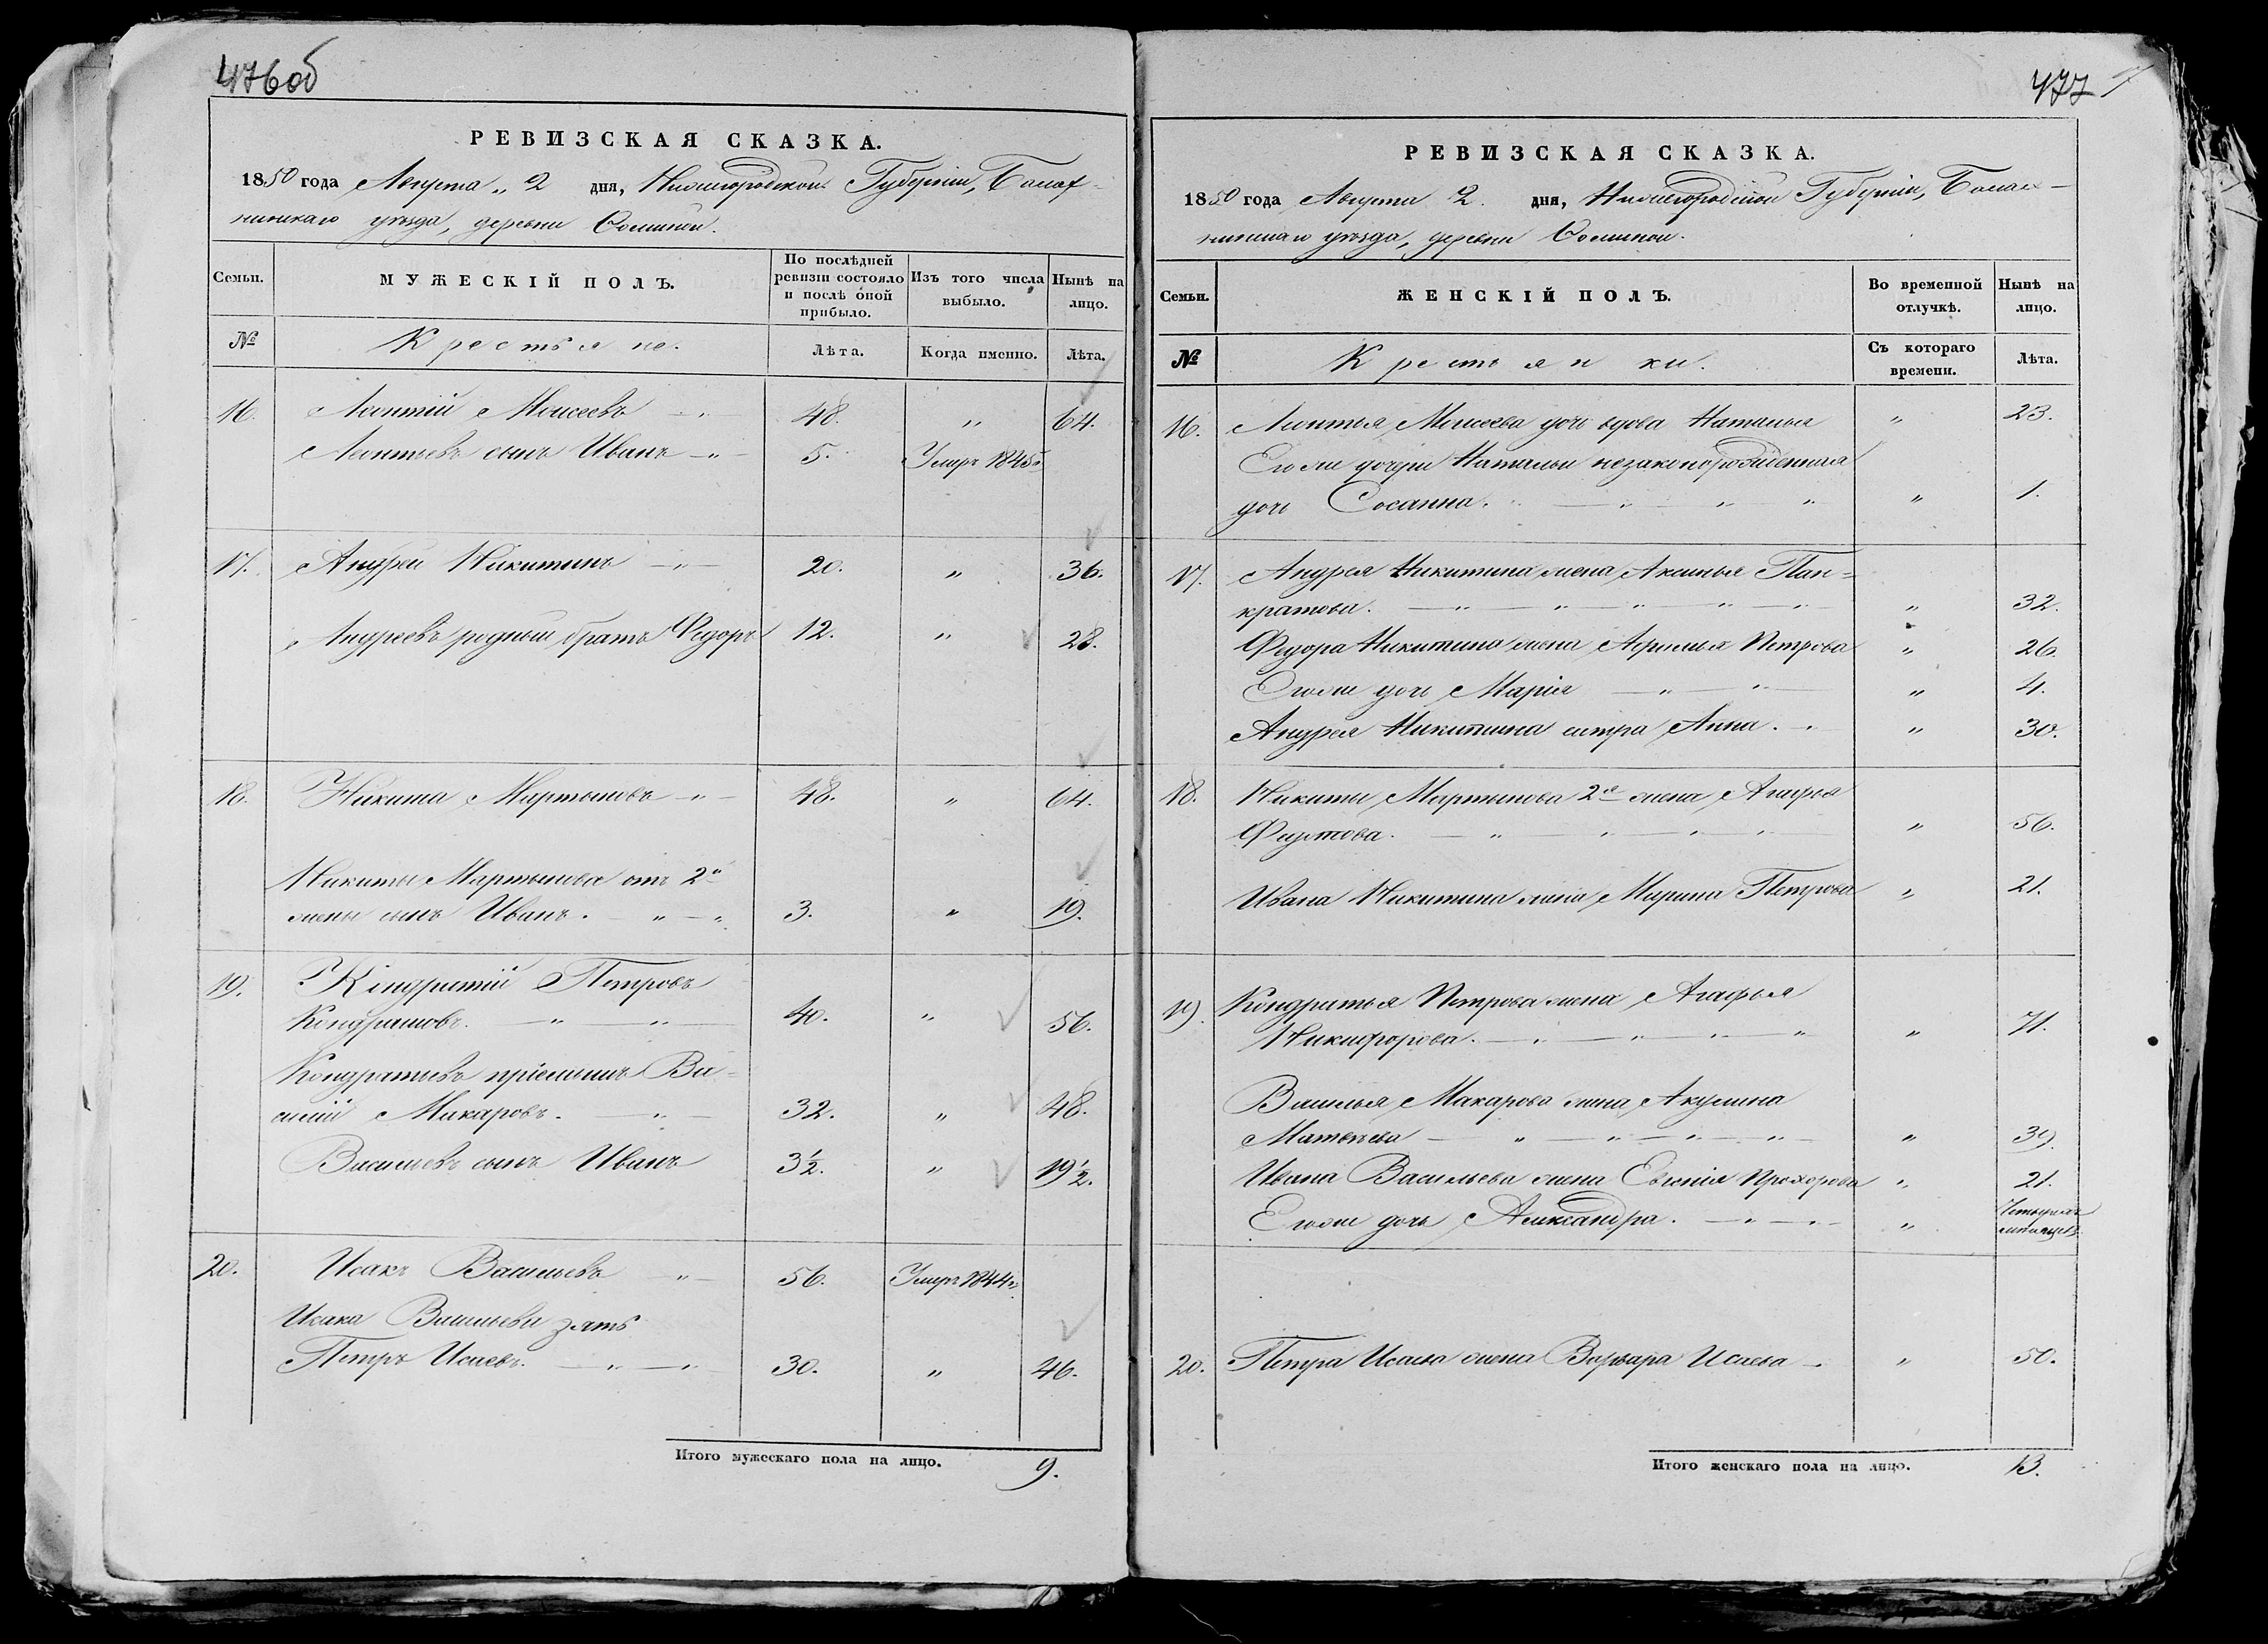 476об
РЕВИЗСКАЯ СКАЗКА.
1850 года Августа „ 2 дня, Нижегородской Губерніи, Балах-
нинскаго уѣзда, деревни Соминой.
Семьи. МУЖЕСКІЙ ПОЛЪ. По послѣдней ревизіи состояло и послѣ оной прибыло. Изъ того числа выбыло. Нынѣ на лицо.
№ Крестьяне. Лѣта. Когда именно. Лѣта.
16. Леонтій Моисеевъ 48. „ 64.
Леонтьевъ сынъ Иванъ 5. Умеръ 1845г.
17. Андрей Никитинъ 20. „ 36.
Андреевъ родный братъ Федоръ 12. „ 28.
18. Никита Мартыновъ 48. „ 64.
Никиты Мартынова отъ 2й
жены сынъ Иванъ. 3. „ 19.
19. Кондратій Петровъ
Кондрашовъ. 40. „ 56.
Кондратьевъ пріемышъ Ва-
силій Макаровъ. 32. „ 48.
Васильевъ сынъ Иванъ 3½. „ 19½.
20. Исакъ Васильевъ 56. Умеръ 1844г.
Исака Васильева зять
Петръ Исаевъ. 30. „ 46.
Итого мужескаго пола на лицо. 9.
477
РЕВИЗСКАЯ СКАЗКА.
1850 года Августа 2. дня, Нижегородской Губерніи, Балах-
нинскаго уѣзда, деревни Соминой.
Семьи. ЖЕНСКІЙ ПОЛЪ. Во временной отлучкѣ. Нынѣ на лицо.
№ Крестьянки. Съ котораго времени. Лѣта.
16. Леонтья Моисеева дочь вдова Наталья „ 23.
Его же дочери Натальи незаконорожденная
дочь Сосанна. „ 1.
17. Андрея Никитина жена Аксинья Пан-
кратова. „ 32.
Федора Никитина жена Афимья Петрова „ 26.
Его же дочь Марія „ 4.
Андрея Никитина сестра Анна. „ 30.
18. Никиты Мартынова 2я жена Агафья
Федотова. „ 56.
Ивана Никитина жена Марина Петрова „ 21.
19. Кондратья Петрова жена Агафья
Никифорова. „ 71.
Василья Макарова жена Акулина
Матвѣева „ 39.
Ивана Васильева жена Евгенія Прохорова „ 21.
Его же дочь Александра. „ Четырехъ мѣсяцевъ.
20. Петра Исаева жена Варвара Исаева „ 50.
Итого женскаго пола на лицо. 13.